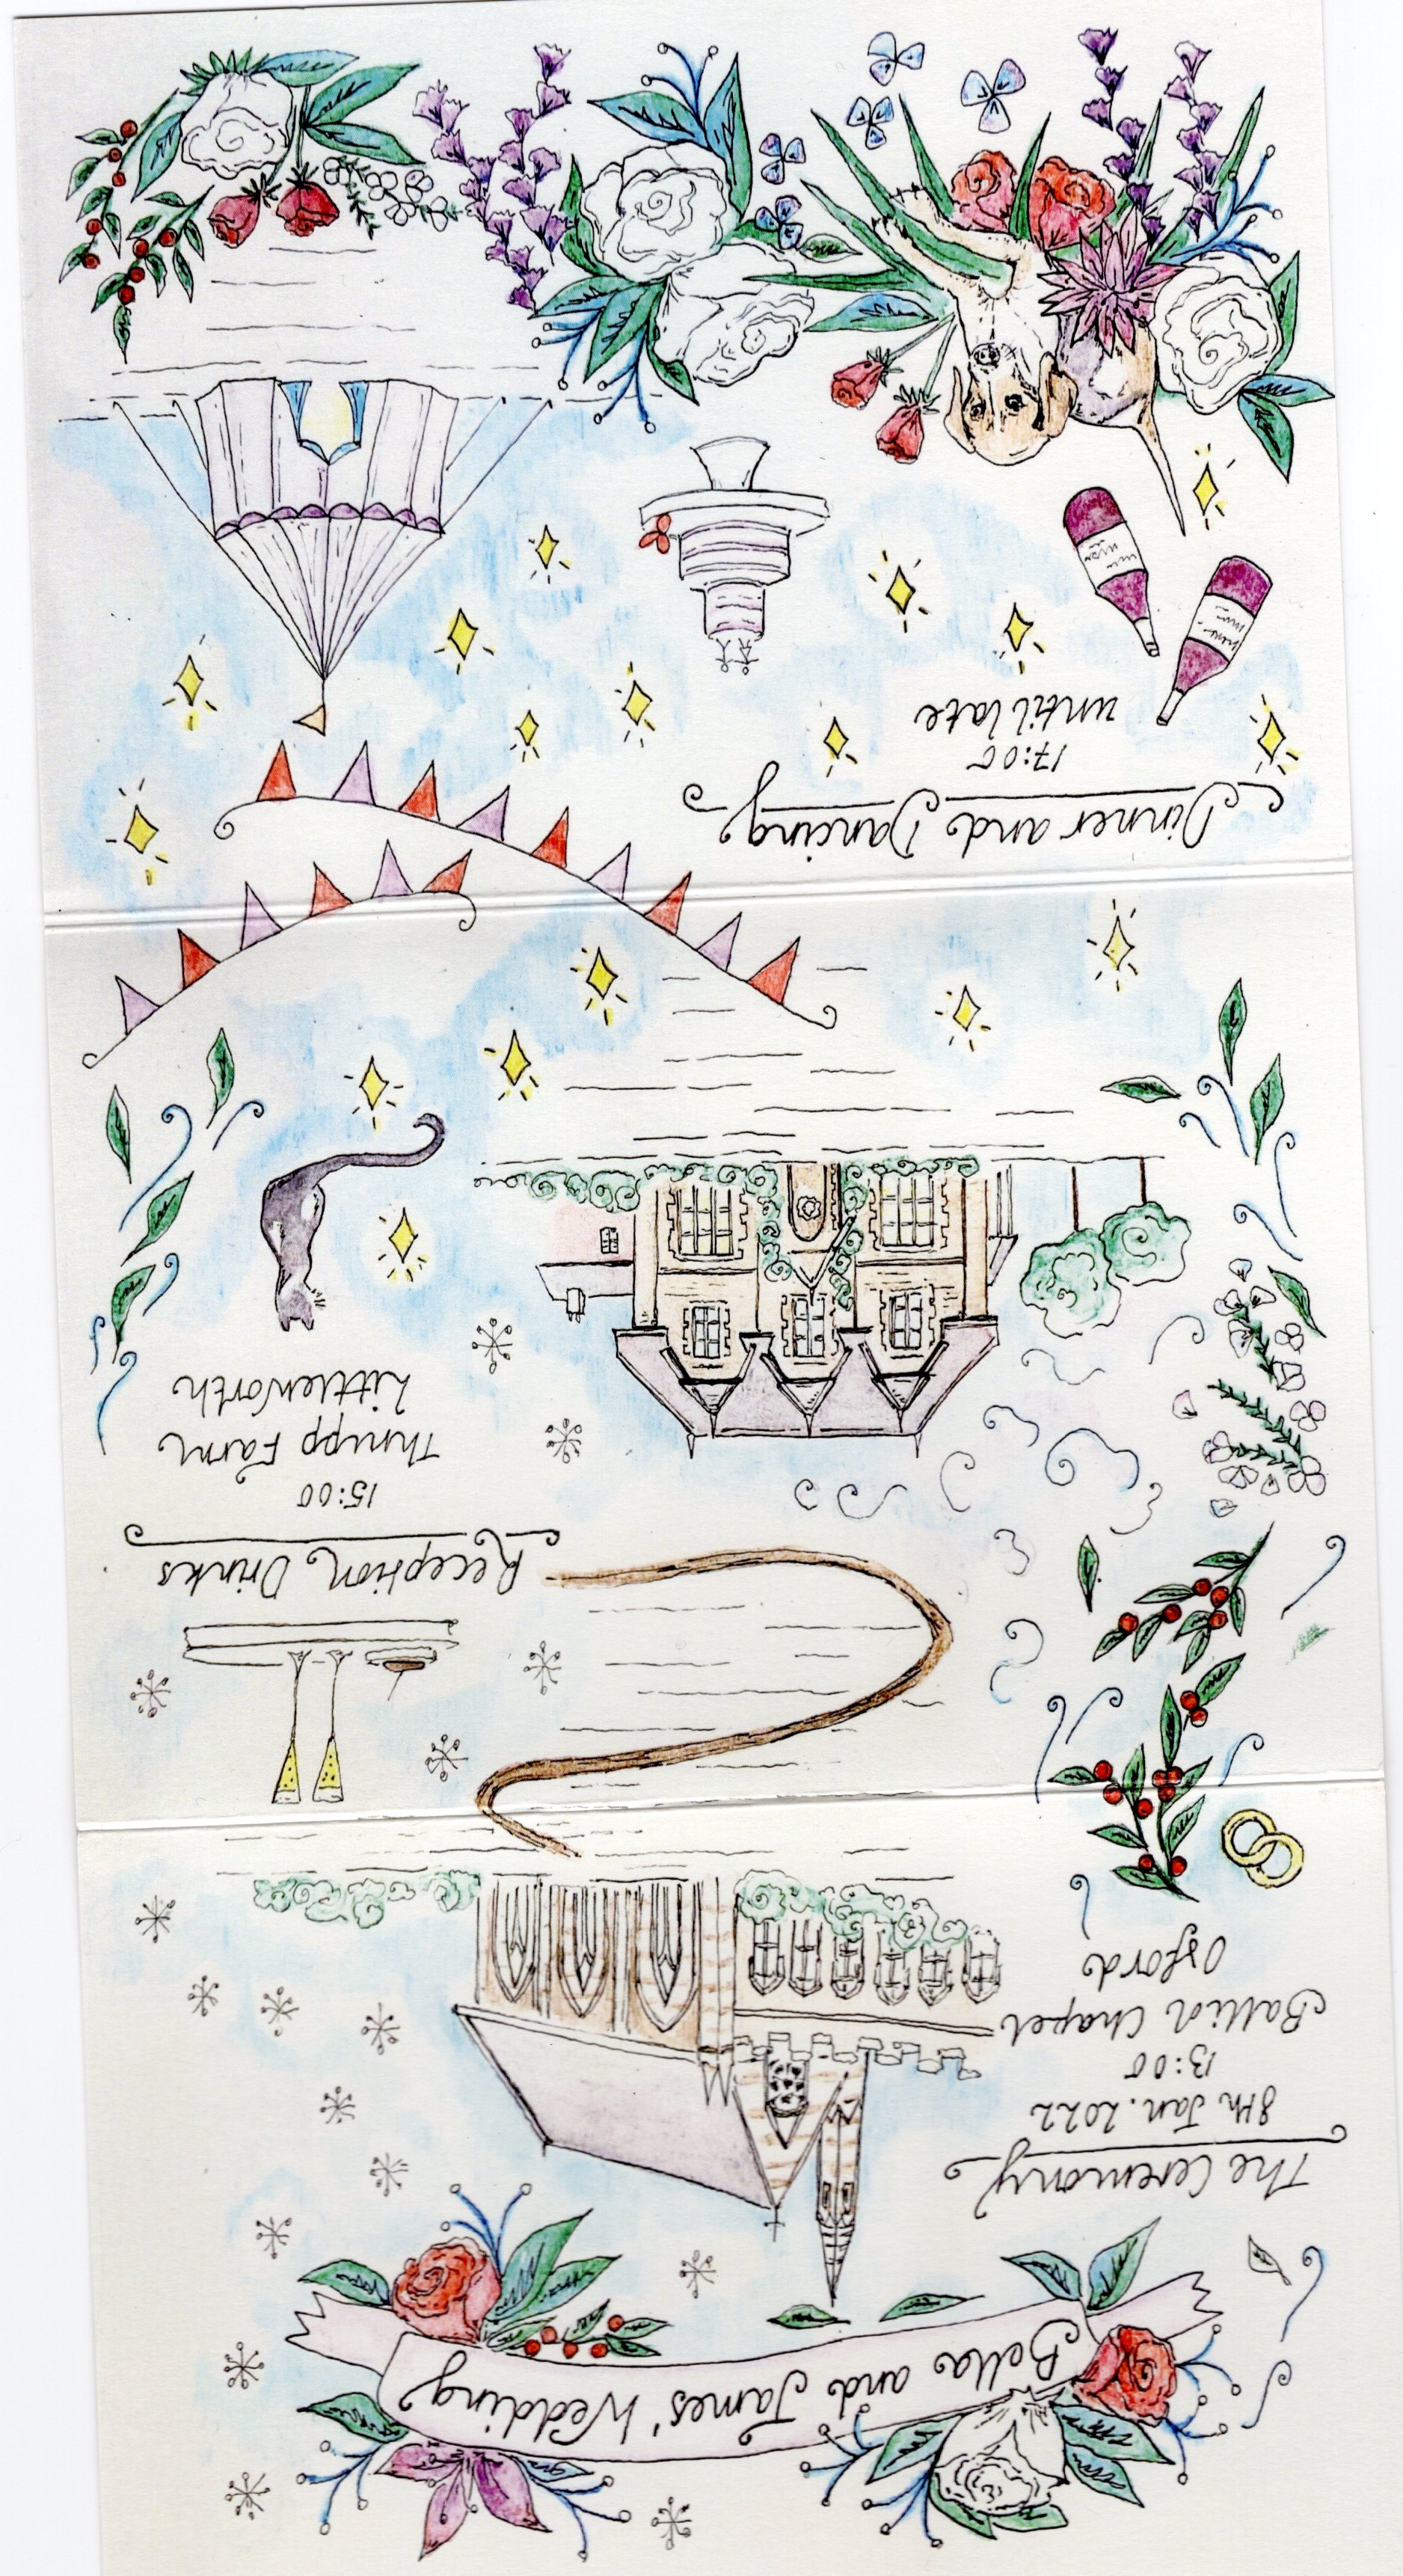 Bella and James' Wedding
The Ceremony
8th Jan. 2022
13:00
Balliol Chapel
Oxford
Reception Drinks
15:00
Thrupp Farm
Littleworth
Dinner and Dancing
17:00
until late